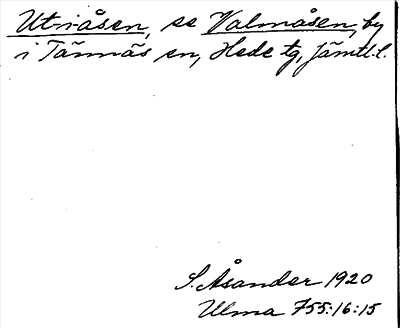 Ut-i-åsen, se Valmåsen, by
i Tännäs sn, Hede tg, Jämtl. l.
S. Åsander 1920
Ulma 755:16:15